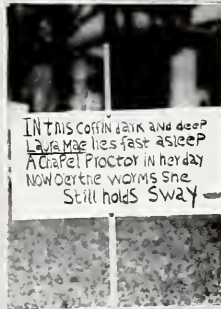 IN this coffin dark and deep
Laura Mae lies fast asleep
A Chapel Proctor in her day
Now oer the worms she
Still holds Sway